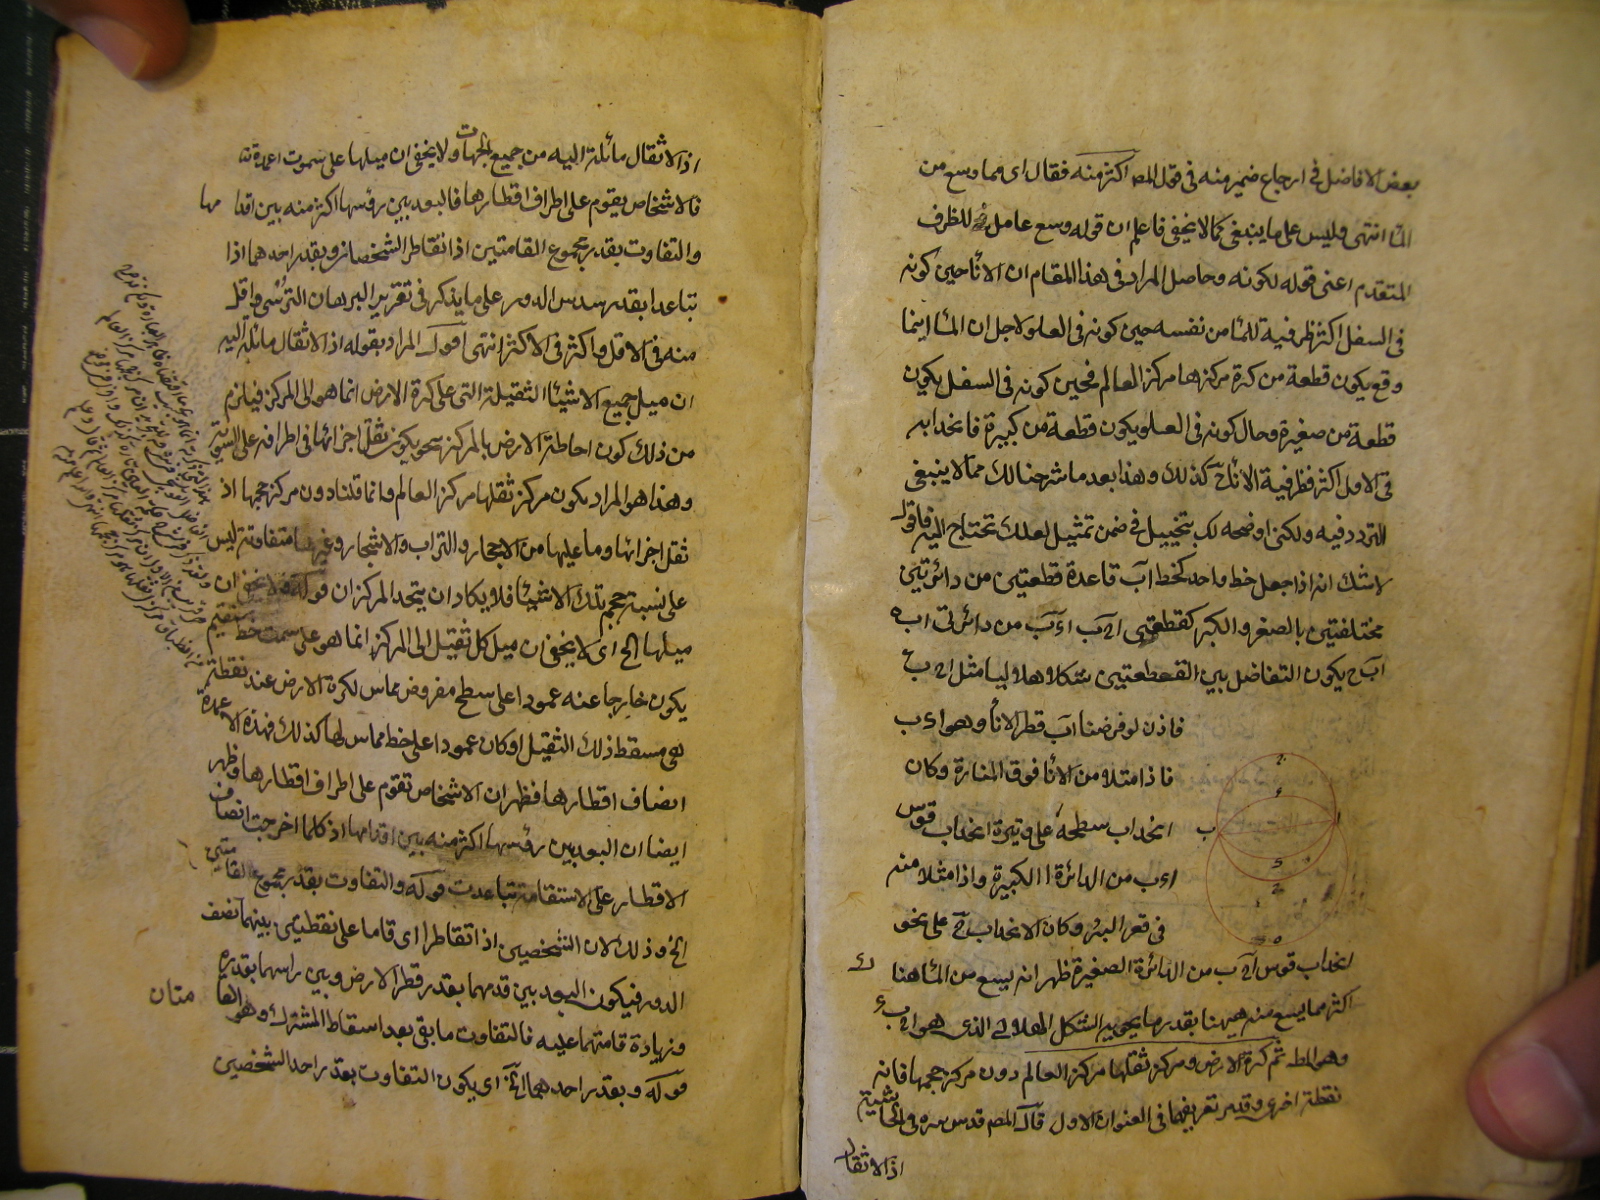 بعض الافاضل في ارجاع ضمير منه في قول المص اكثر منه فقال اى مما وسع من
الماء انتهى وليس على ما ينبغي كما لا يخفى فاعلم ان قوله وسع عامل للظرف
المتقدم اعنى قوله لكونه وحاصل المراد في هذا المقام ان الاناء حين كونه
في السفل اكثر ظرفية للماء من نفسه حين كونه في العلو لاجل ان الماء اينما
وقع يكون قطعة من كرة مركزها مركز العالم فحين كونه في السفل يكون
قطعة من صغيرة وحال كونه في العلو يكون قطعة من كبيرة فانحدابه
في الاول اكثر فظرفية الاناء ح كذلك وهذا بعد ما شرحنا لك مما لا ينبغي
التردد فيه ولكنى اوضحه لك بتخييل في ضمن تمثيل لعلك تحتاج اليه فاقول
لا شك انه اذا جعل خط واحد كخط اب قاعدة قطعتين من دائرتين
مختلفتين بالصغر والكبر كقطعتى اح ب اء ب من دائرتى اب ه
اب ح يكون التفاضل بين القطعتين شكلا هلاليا مثل اح ب ء
فاذن لو فرضنا اب قطر الاناء وهو اء ب
فاذا امتلا من الاناء فوق المنارة وكان
انحداب سطحه على وتيرة انحداب قوس
اء ب من الدائرة الكبيرة واذا امتلا منه
في قعر البئر وكان الانحداب ح على نحو
انحداب قوس اح ب من الدائرة الصغيرة ظهر انه يسع من الماء هنا
اكثر مما يسع منه هيهنا بقدر ما يحويه الشكل الهلالى الذى هو اح ب ء
وهو المط ثم كرة الارض ومركز ثقلها مركز العالم دون مركز حجمها فانه
نقطة اخرى وقد مر تعريفهما في العنوان الاول قال المص قدس سره في الحاشية
اذ الاثقال
اذ الاثقال مائلة اليه من جميع الجهات ولا يخفى ان ميلها على سموت اعمدة
فالاشخاص يقوم على اطراف اقطارها فالبعد بين رؤسها اكثر منه بين اقدامها
والتفاوت بقدر مجموع القامتين اذا تقاطر الشخصان وبقدر احدهما اذا
تباعدا بقدر سدس الدور على ما يذكر في تقرير البرهان الترسى واقل
منه في الاقل واكثر في الاكثر انتهى اقول المراد بقوله اذ الاثقال مائلة اليه
ان ميل جميع الاشياء الثقيلة التي على كرة الارض انما هو الى المركز فيلزم
من ذلك كون احاطة الارض بالمركز بنحو يكون ثقل اجزائها في اطرافه على السوية
وهذا هو المراد بكون مركز ثقلها مركز العالم وانما قلنا دون مركز حجمها اذ
ثقل اجزائها وما عليها من الاحجار والتراب والاشجار وغيرها متفاوتة ليس
على نسبة حجم تلك الاشياء فلا يكاد ان يتحد المركزان قوله ولا يخفى ان
ميلها الخ اى لا يخفى ان ميل كل ثقيل الى المركز انما هو على سمت خط مستقيم
يكون خارجا عنه عمودا على سطح مفروض مماس لكرة الارض عند نقطة
هي مسقط ذلك الثقيل او كان عمودا على خط مماس لها كذلك فهذه الاعمدة
انصاف اقطارها فظهر ان الاشخاص تقوم على اطراف اقطارها وظهر
ايضا ان البعد بين رؤسها اكثر منه بين اقدامها اذ كلما اخرجت انصاف
الاقطار على الاستقامة تباعدت قوله والتفاوت بقدر مجموع القامتين
الخ وذلك لان الشخصين اذا تقاطرا اى قاما على نقطتين بينهما نصف
الدور فيكون البعد بين قدمهما بقدر قطر الارض وبين راسهما بقدره
وزيادة قامتهما عليه فالتفاوت ما بقى بعد اسقاط المشترك وهو القامتان
قوله وبقدر احدهما الخ اى يكون التفاوت بقدر احد الشخصين